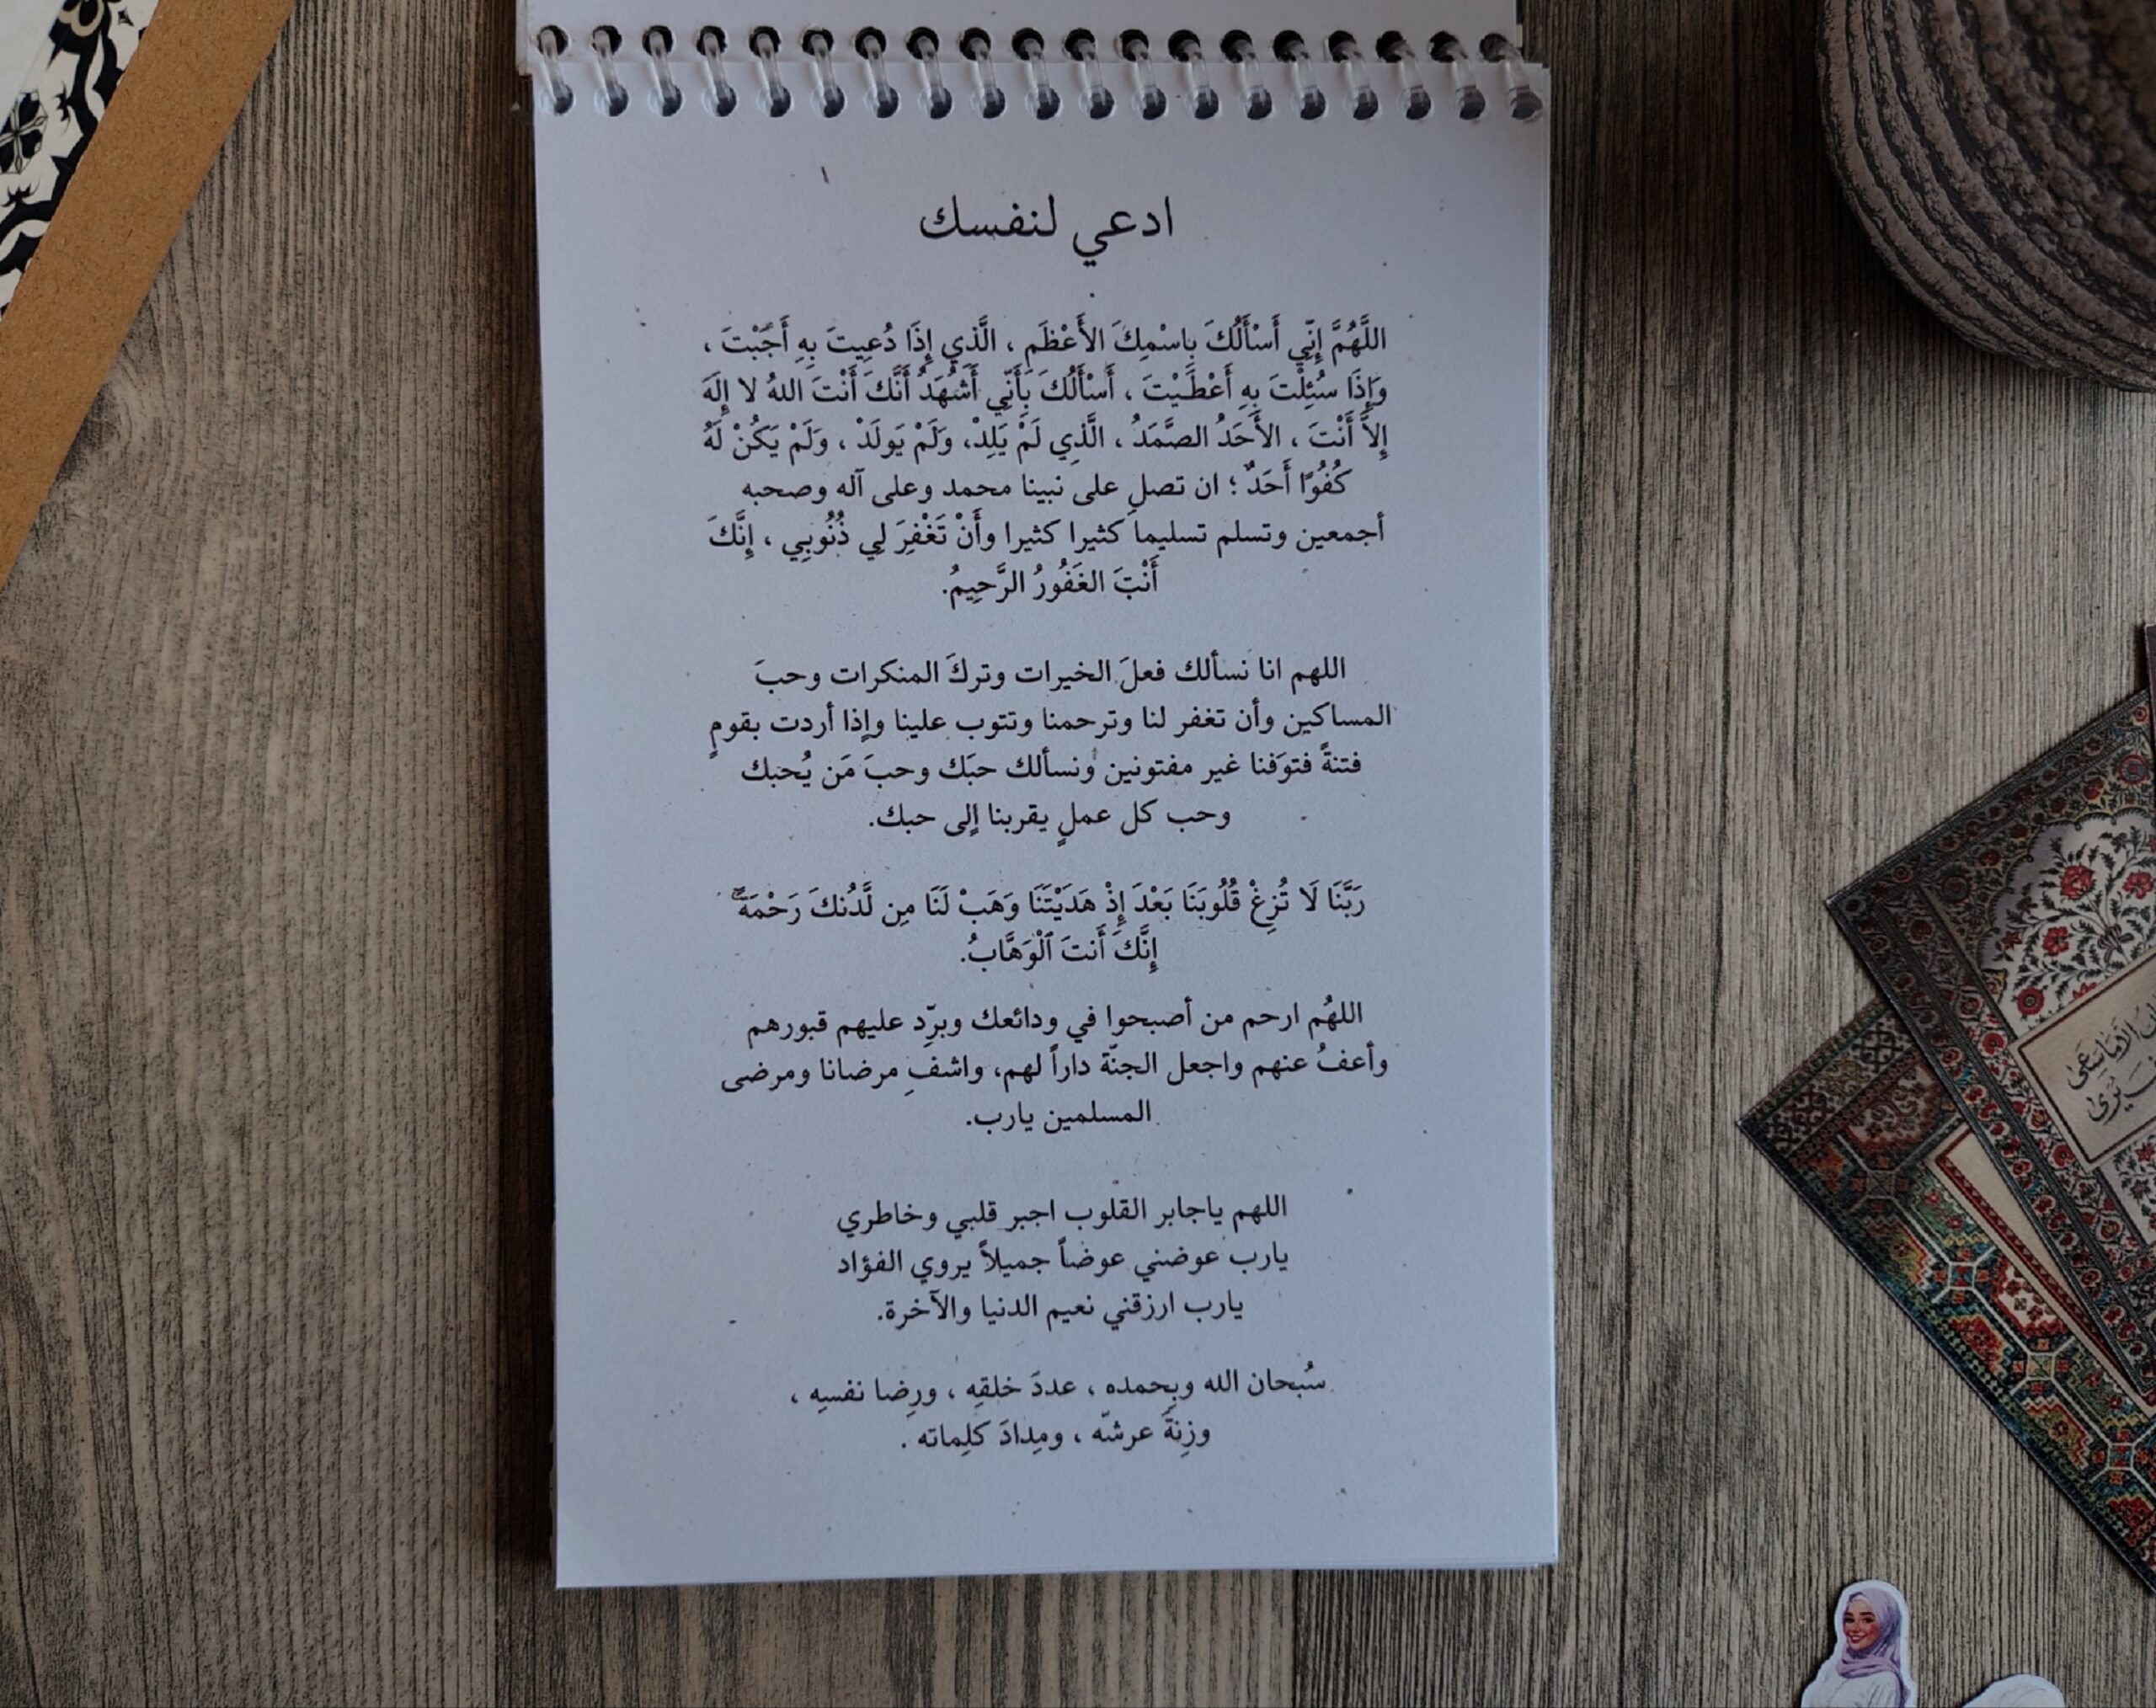 ادعي لنفسك
اللَّهُمَّ إِنِّي أَسْأَلُكَ بِاسْمِكَ الأَعْظَمِ ، الَّذِي إِذَا دُعِيتَ بِهِ أَجَبْتَ ،
وَإِذَا سُئِلْتَ بِهِ أَعْطَيْتَ ، أَسْأَلُكَ بَأَنِّي أَشْهَدُ أَنَّكَ أَنْتَ اللهُ لا إِلَهَ
إِلاَّ أَنْتَ ، الأَحَدُ الصَّمَدُ ، الَّذِي لَمْ يَلِدْ، وَلَمْ يَولَدْ ، وَلَمْ يَكُنْ لَهُ
كُفُوًا أَحَدٌ ؛ ان تصلِ على نبينا محمد وعلى آله وصحبه
أجمعين وتسلم تسليما كثيرا كثيرا وأَنْ تَغْفِرَ لِي ذُنُوبِي ، إِنَّكَ
أَنْتَ الغَفُورُ الرَّحِيمُ.
اللهم انا نسألك فعلَ الخيرات وتركَ المنكرات وحبَ
المساكين وأن تغفر لنا وترحمنا وتتوب علينا وإذا أردت بقومٍ
فتنةً فتوَفنا غير مفتونين ونسألك حبَك وحبَ مَن يُحبك
وحب كل عملٍ يقربنا إلى حبك.
رَبَّنَا لَا تُزِغْ قُلُوبَنَا بَعْدَ إِذْ هَدَيْتَنَا وَهَبْ لَنَا مِن لَّدُنكَ رَحْمَةً ۚ
إِنَّكَ أَنتَ ٱلْوَهَّابُ.
اللهُم ارحم من أصبحوا في ودائعك وبرِّد عليهم قبورهم
وأعفُ عنهم واجعل الجنّة داراً لهم، واشفِ مرضانا ومرضى
المسلمين يارب.
اللهم ياجابر القلوب اجبر قلبي وخاطري
يارب عوضني عوضاً جميلاً يروي الفؤاد
يارب ارزقني نعيم الدنيا والآخرة.
سُبحان الله وبِحمده ، عددَ خلقِه ، ورِضا نفسِه ،
وزِنةَ عرشّه ، ومِدادَ كلِماته .